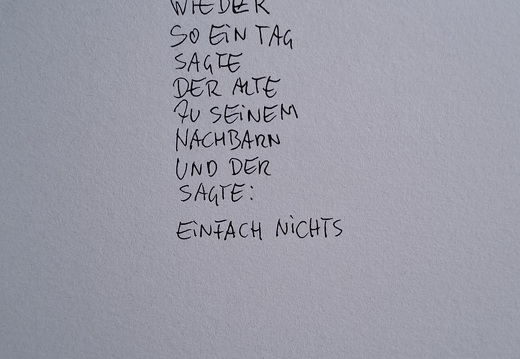 WIEDER
SO EiN TAG
SAGTE
DER ALTE
ZU SEiNEM
NACHBARN
UND DER
SAGTE:
EiNFACH NiCHTS